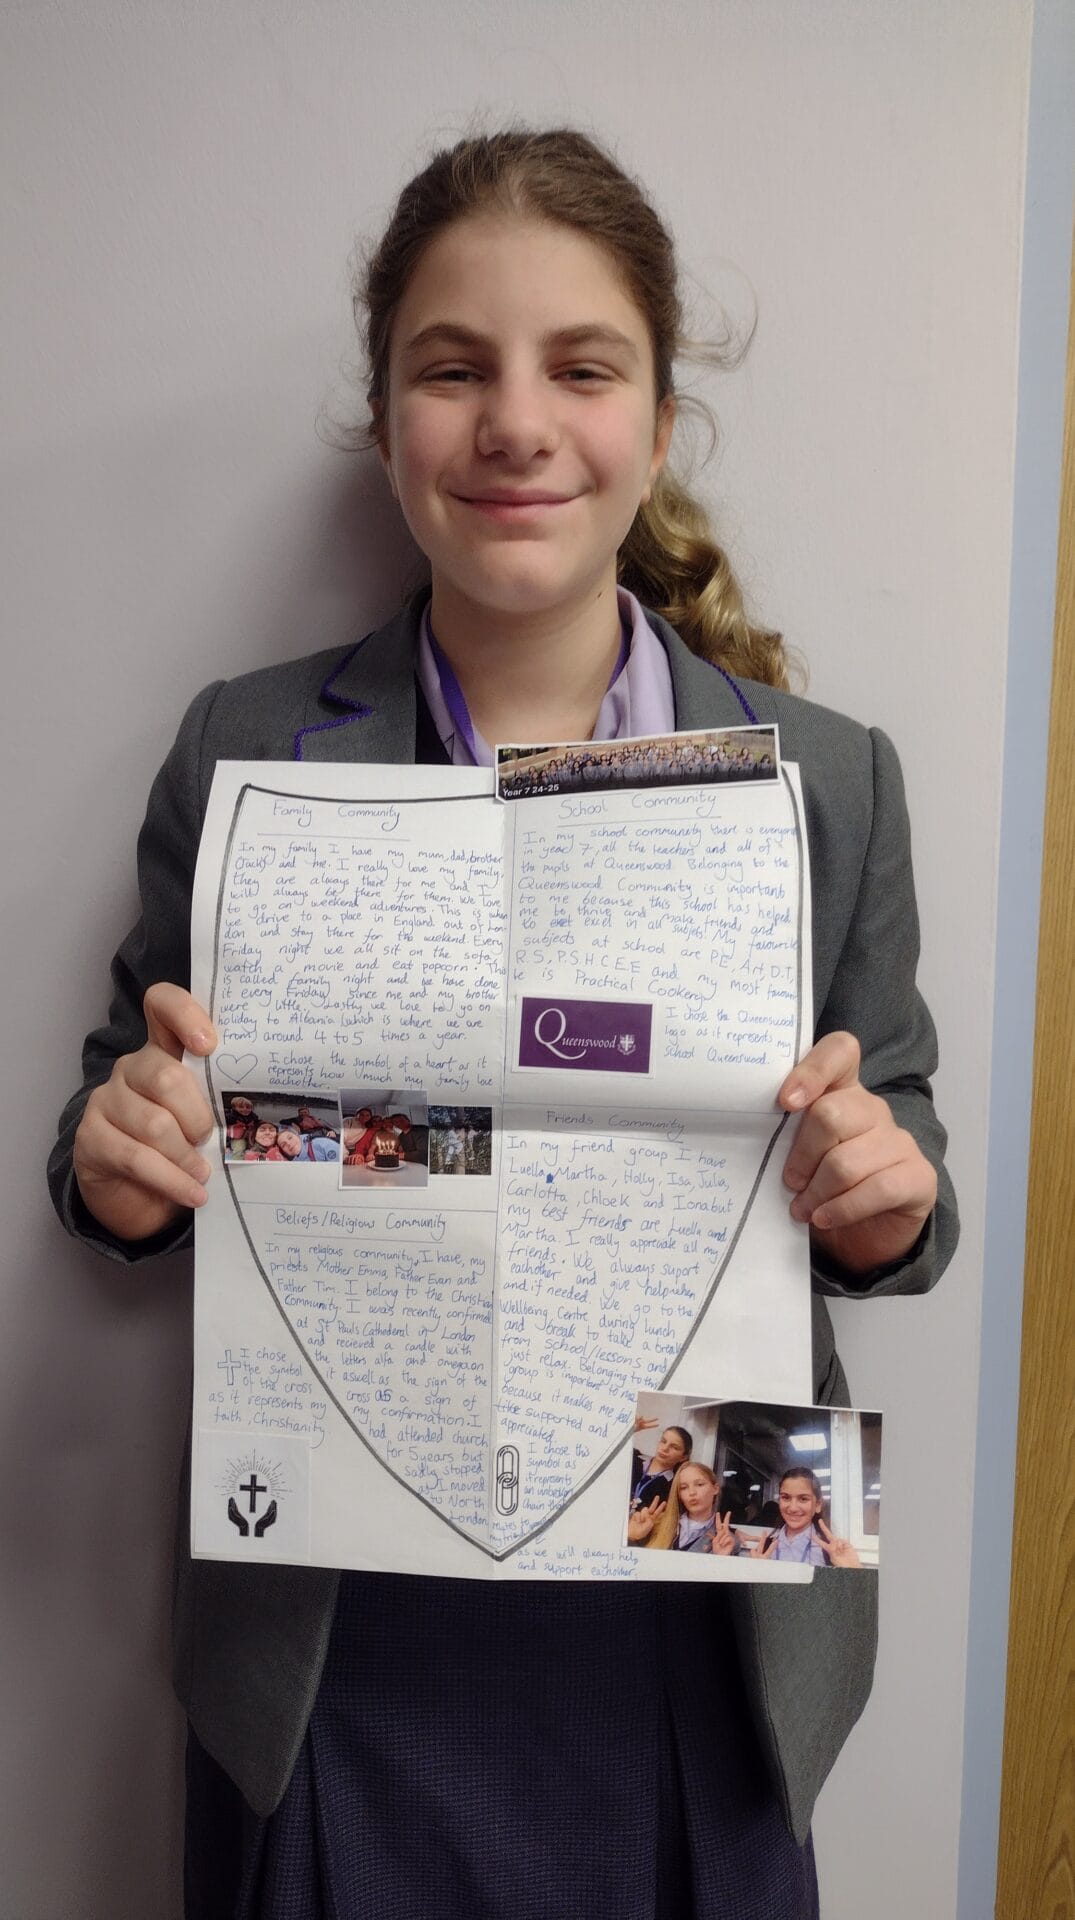 Year 7 24-25
Family Community
In my family I have my mum, dad, brother
(Jack) and me. I really love my family,
they are always there for me and I
will always be there for them. We love
to go on weekend adventures. This is when
we drive to a place in England out of Lon-
don and stay there for the weekend. Every
Friday night we all sit on the sofa,
watch a movie and eat popcorn. This
is called family night and we have done
it every Friday since me and my brother
were little. Lastly we love to go on
holiday to Albania (which is where we are
from) around 4 to 5 times a year.
I chose the symbol of a heart as it
represents how much my family love
eachother.
School Community
In my school community there is everyone
in year 7, all the teachers and all of
the pupils at Queenswood. Belonging to the
Queenswood Community is important
to me because this school has helped
me to thrive and make friends and
to excel in all subjets! My favourite
subjects at school are P.E, Art, D.T,
R.S, P.S.H.C.E.E and my most favour
is Practical Cookery
Queenswood
I chose the Queenswood
logo as it represents my
school Queenswood.
Beliefs/Religious Community
In my religious community, I have, my
priests Mother Emma, Father Evan and
Father Tim. I belong to the Christian
Community. I was recently confirmed
at St Pauls Cathederal in London
and recieved a candle with
the letters alfa and omega on
it aswell as the sign of the
cross as a sign of
my confirmation. I
had attended church
for 5 years but
sadly stopped
as I moved
to North
London
I chose
the symbol
of the cross
as it represents my
faith, Christianity
Friends Community
In my friend group I have
Luella, Martha, Holly, Isa, Julia,
Carlotta, Chloe K and Iona but
my best friends are Luella and
Martha. I really appreciate all my
friends. We always suport
eachother and give help when
and if needed. We go to the
Wellbeing Centre during lunch
and break to take a break
from school/lessons and
just relax. Belonging to this
group is important to me
because it makes me feel
like supported and
appreciated.
I chose this
symbol as
it represents
an unbroken
chain that
relates to
my friend
as we will always help
and support eachother.